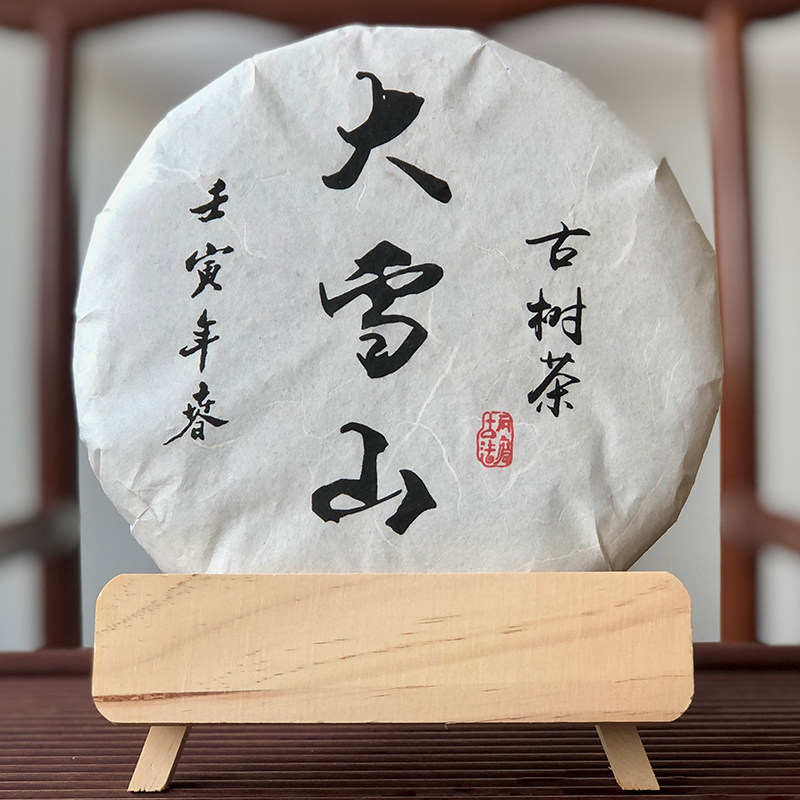 古树茶
大雪山
壬寅年春